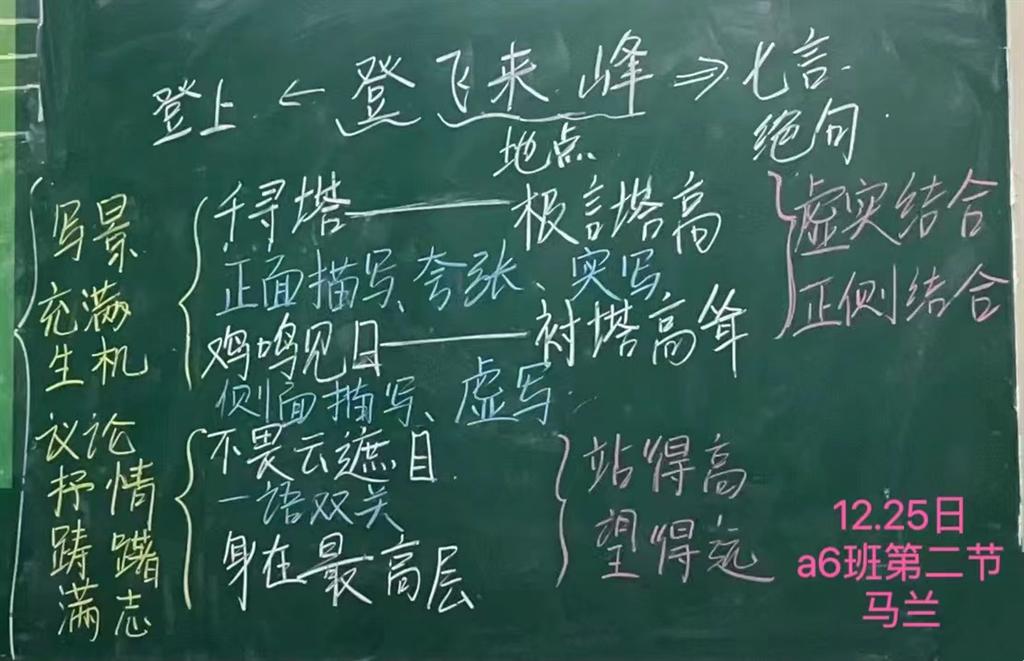 登上 ← 登飞来峰 ⇒ 七言
地点 绝句
写景
充满
生机
千寻塔——极言塔高
正面描写、夸张、实写
鸡鸣见日——衬塔高耸
侧面描写、虚写
虚实结合
正侧结合
议论
抒情
踌躇
满志
不畏云遮目
一语双关
身在最高层
站得高
望得远
12.25日
a6班第二节
马兰